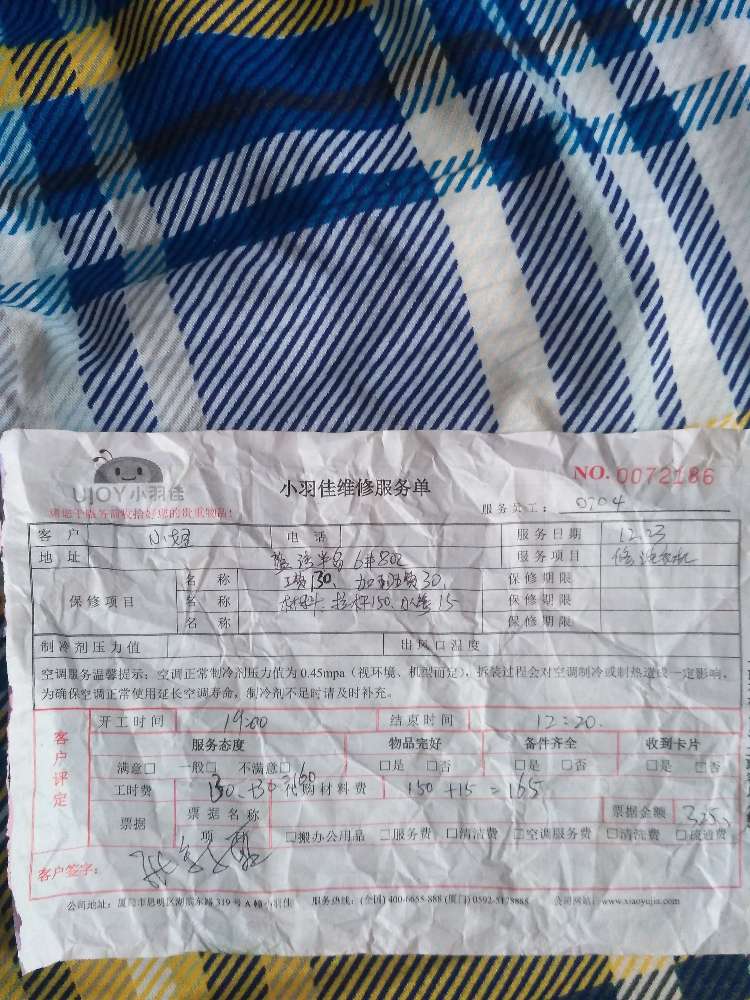 UJOY小羽佳
小羽佳维修服务单
NO. 0072186
请您于服务前收拾好您的贵重物品!
服务员工: 0704
客户 电话 服务日期 12.23
地址 6#802 服务项目 修洗衣机
保修项目
名称 工费130、加班费30、 保修期限
名称 材料、拉杆150、水管15 保修期限
名称 保修期限
制冷剂压力值 出风口温度
空调服务温馨提示: 空调正常制冷剂压力值为0.45mpa(视环境、机型而定), 拆装过程会对空调制冷或制热造成一定影响,
为确保空调正常使用延长空调寿命, 制冷剂不足时请及时补充。
客户评定
开工时间 19:00 结束时间 12:20
服务态度 物品完好 备件齐全 收到卡片
满意□ 一般□ 不满意□ □是 □否 □是 □否 □是 □否
工时费 130+30=160 代购材料费 150+15=165
票据 票据名称 票据金额 325
项 □搬办公用品 □服务费 □清洁费 □空调服务费 □清洗费 □疏通费
客户签字:
公司地址: 厦门市思明区湖滨东路319号A幢小羽佳 服务热线: (全国) 400-6655-888 (厦门) 0592-5128888 公司网站: www.xiaoyujia.com